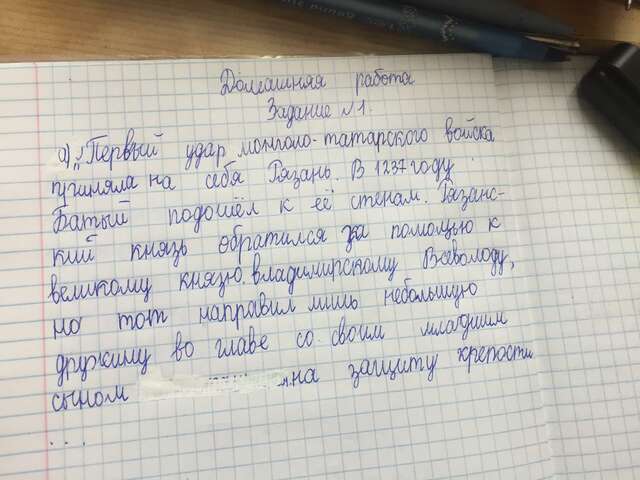 Домашняя работа
Задание №1.
а) „Первый удар монголо-татарского войска
приняла на себя Рязань. В 1237 году
Батый подошёл к её стенам. Рязанс-
кий князь обратился за помощью к
великому князю владимирскому Всеволоду,
но тот направил лишь небольшую
дружину во главе со своим младшим
сыном на защиту крепости
...